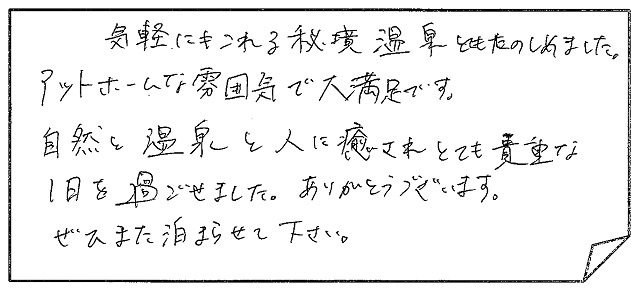 気軽にきこれる秘境温泉とてもたのしめました。
アットホームな雰囲気で大満足です。
自然と温泉と人に癒されとても貴重な
1日を過ごせました。ありがとうございます。
ぜひまた泊まらせて下さい。